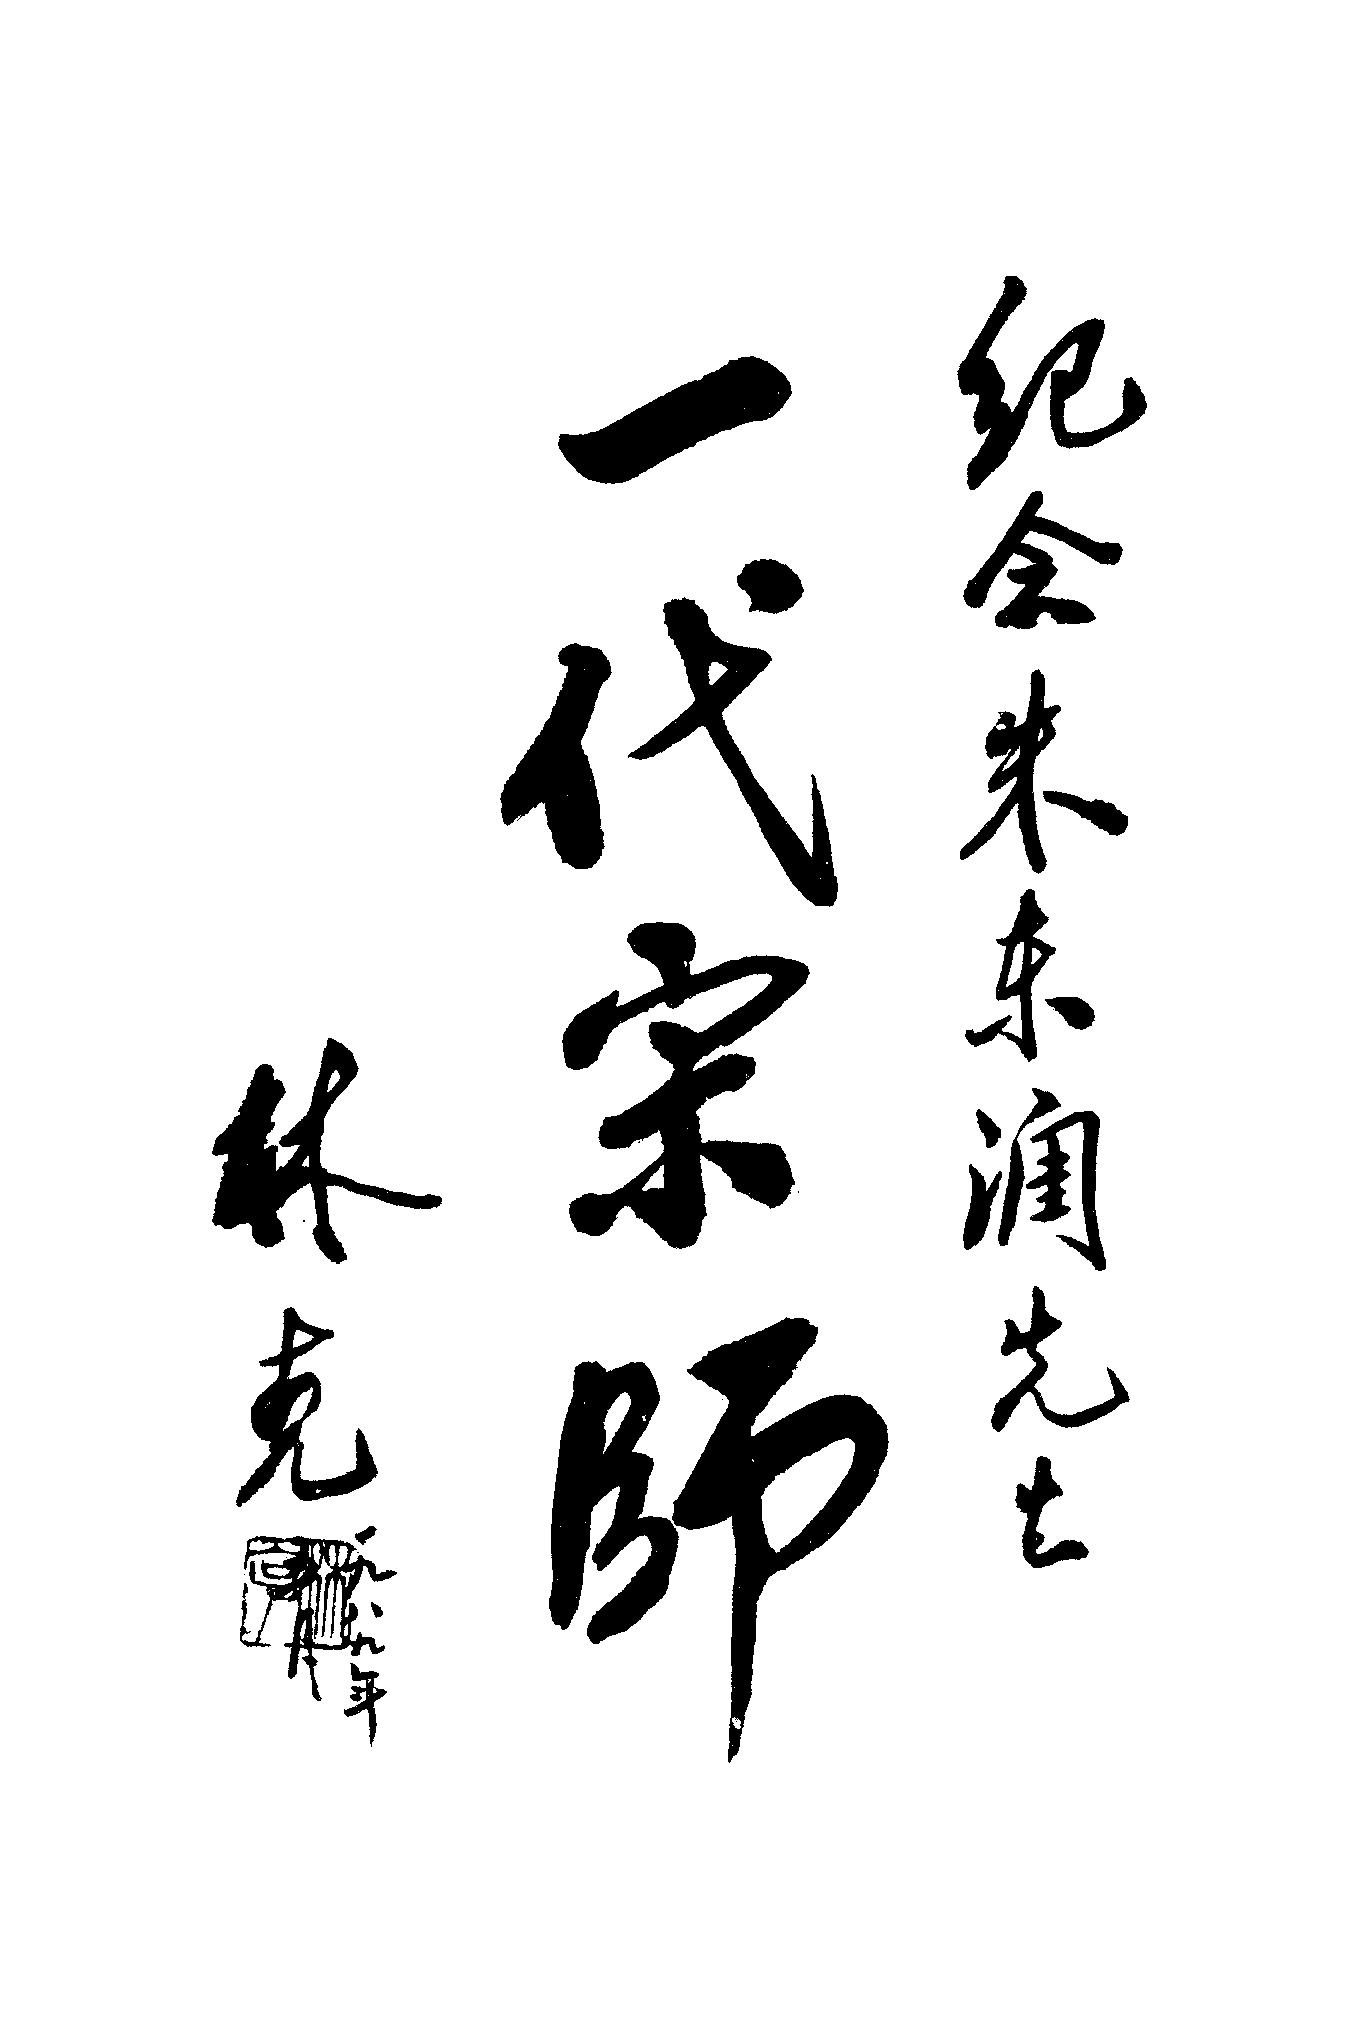 纪念朱东润先生
一代宗師
林克
一九八九年